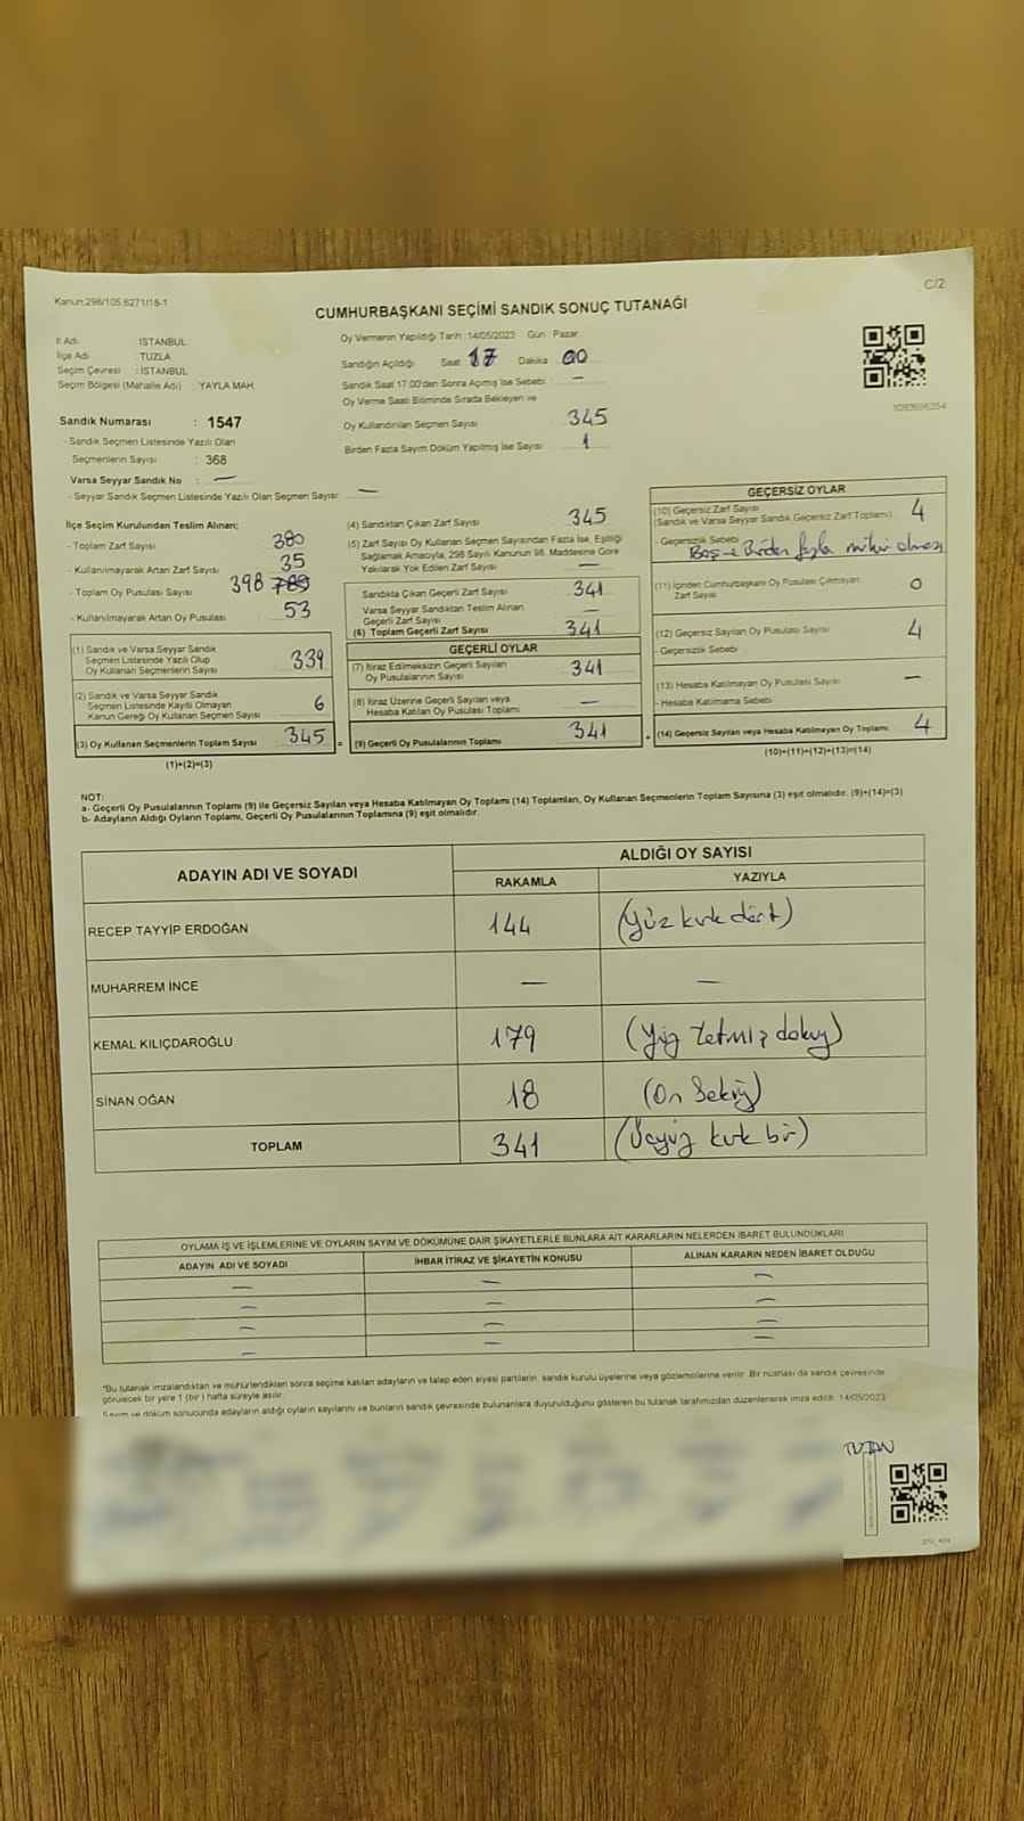 Kanun:298/105.6271/18-1
C/2
CUMHURBAŞKANI SEÇİMİ SANDIK SONUÇ TUTANAĞI
İl Adı İSTANBUL
İlçe Adı TUZLA
Seçim Çevresi : İSTANBUL
Seçim Bölgesi (Mahalle Adı) : YAYLA MAH.
Sandık Numarası : 1547
- Sandık Seçmen Listesinde Yazılı Olan
Seçmenlerin Sayısı : 368
Varsa Seyyar Sandık No : —
- Seyyar Sandık Seçmen Listesinde Yazılı Olan Seçmen Sayısı —
Oy Vermenin Yapıldığı Tarih :14/05/2023 Gün : Pazar
Sandığın Açıldığı Saat 17 Dakika 00
Sandık Saat 17:00'den Sonra Açılmış İse Sebebi : —
Oy Verme Saati Bitiminde Sırada Bekleyen ve
Oy Kullandırılan Seçmen Sayısı 345
Birden Fazla Sayım Döküm Yapılmış İse Sayısı 1
İlçe Seçim Kurulundan Teslim Alınan;
- Toplam Zarf Sayısı 380
- Kullanılmayarak Artan Zarf Sayısı 35
- Toplam Oy Pusulası Sayısı 398 789
- Kullanılmayarak Artan Oy Pusulası 53
(1) Sandık ve Varsa Seyyar Sandık
Seçmen Listesinde Yazılı Olup
Oy Kullanan Seçmenlerin Sayısı 339
(2) Sandık ve Varsa Seyyar Sandık
Seçmen Listesinde Kayıtlı Olmayan
Kanun Gereği Oy Kullanan Seçmen Sayısı 6
(3) Oy Kullanan Seçmenlerin Toplam Sayısı 345 =
(1)+(2)=(3)
(4) Sandıktan Çıkan Zarf Sayısı 345
(5) Zarf Sayısı Oy Kullanan Seçmen Sayısından Fazla İse, Eşitliği
Sağlamak Amacıyla, 298 Sayılı Kanunun 98. Maddesine Göre
Yakılarak Yok Edilen Zarf Sayısı —
Sandıkta Çıkan Geçerli Zarf Sayısı 341
Varsa Seyyar Sandıktan Teslim Alınan
Geçerli Zarf Sayısı —
(6) Toplam Geçerli Zarf Sayısı 341
GEÇERLİ OYLAR
(7) İtiraz Edilmeksizin Geçerli Sayılan
Oy Pusulalarının Sayısı 341
(8) İtiraz Üzerine Geçerli Sayılan veya
Hesaba Katılan Oy Pusulası Toplamı —
(9) Geçerli Oy Pusulalarının Toplamı 341
GEÇERSİZ OYLAR
(10) Geçersiz Zarf Sayısı
(Sandık ve Varsa Seyyar Sandık Geçersiz Zarf Toplamı) 4
- Geçersizlik Sebebi
Boş ve Birden fazla mühür olması
(11) İçinden Cumhurbaşkanı Oy Pusulası Çıkmayan
Zarf Sayısı 0
(12) Geçersiz Sayılan Oy Pusulası Sayısı 4
- Geçersizlik Sebebi
(13) Hesaba Katılmayan Oy Pusulası Sayısı —
- Hesaba Katılmama Sebebi
(14) Geçersiz Sayılan veya Hesaba Katılmayan Oy Toplamı 4
(10)+(11)+(12)+(13)=(14)
NOT:
a- Geçerli Oy Pusulalarının Toplamı (9) ile Geçersiz Sayılan veya Hesaba Katılmayan Oy Toplamı (14) Toplamları, Oy Kullanan Seçmenlerin Toplam Sayısına (3) eşit olmalıdır. (9)+(14)=(3)
b- Adayların Aldığı Oyların Toplamı, Geçerli Oy Pusulalarının Toplamına (9) eşit olmalıdır.
ADAYIN ADI VE SOYADI
ALDIĞI OY SAYISI
RAKAMLA YAZIYLA
RECEP TAYYİP ERDOĞAN 144 (Yüz kırk dört)
MUHARREM İNCE — —
KEMAL KILIÇDAROĞLU 179 (Yüz Yetmiş dokuz)
SİNAN OĞAN 18 (On Sekiz)
TOPLAM 341 (Üçyüz kırk bir)
OYLAMA İŞ VE İŞLEMLERİNE VE OYLARIN SAYIM VE DÖKÜMÜNE DAİR ŞİKAYETLERLE BUNLARA AİT KARARLARIN NELERDEN İBARET BULUNDUKLARI
ADAYIN ADI VE SOYADI İHBAR İTİRAZ VE ŞİKAYETİN KONUSU ALINAN KARARIN NEDEN İBARET OLDUĞU
— — —
— — —
— — —
— — —
*Bu tutanak imzalandıktan ve mühürlendikten sonra seçime katılan adayların ve talep eden siyasi partilerin, sandık kurulu üyelerine veya gözlemcilerine verilir. Bir nüshası da sandık çevresinde
görülecek bir yere 1 (bir) hafta süreyle asılır.
Sayım ve döküm sonucunda adayların aldığı oyların sayılarını ve bunların sandık çevresinde bulunanlara duyurulduğunu gösteren bu tutanak tarafımızdan düzenlenerek imza edildi. 14/05/2023